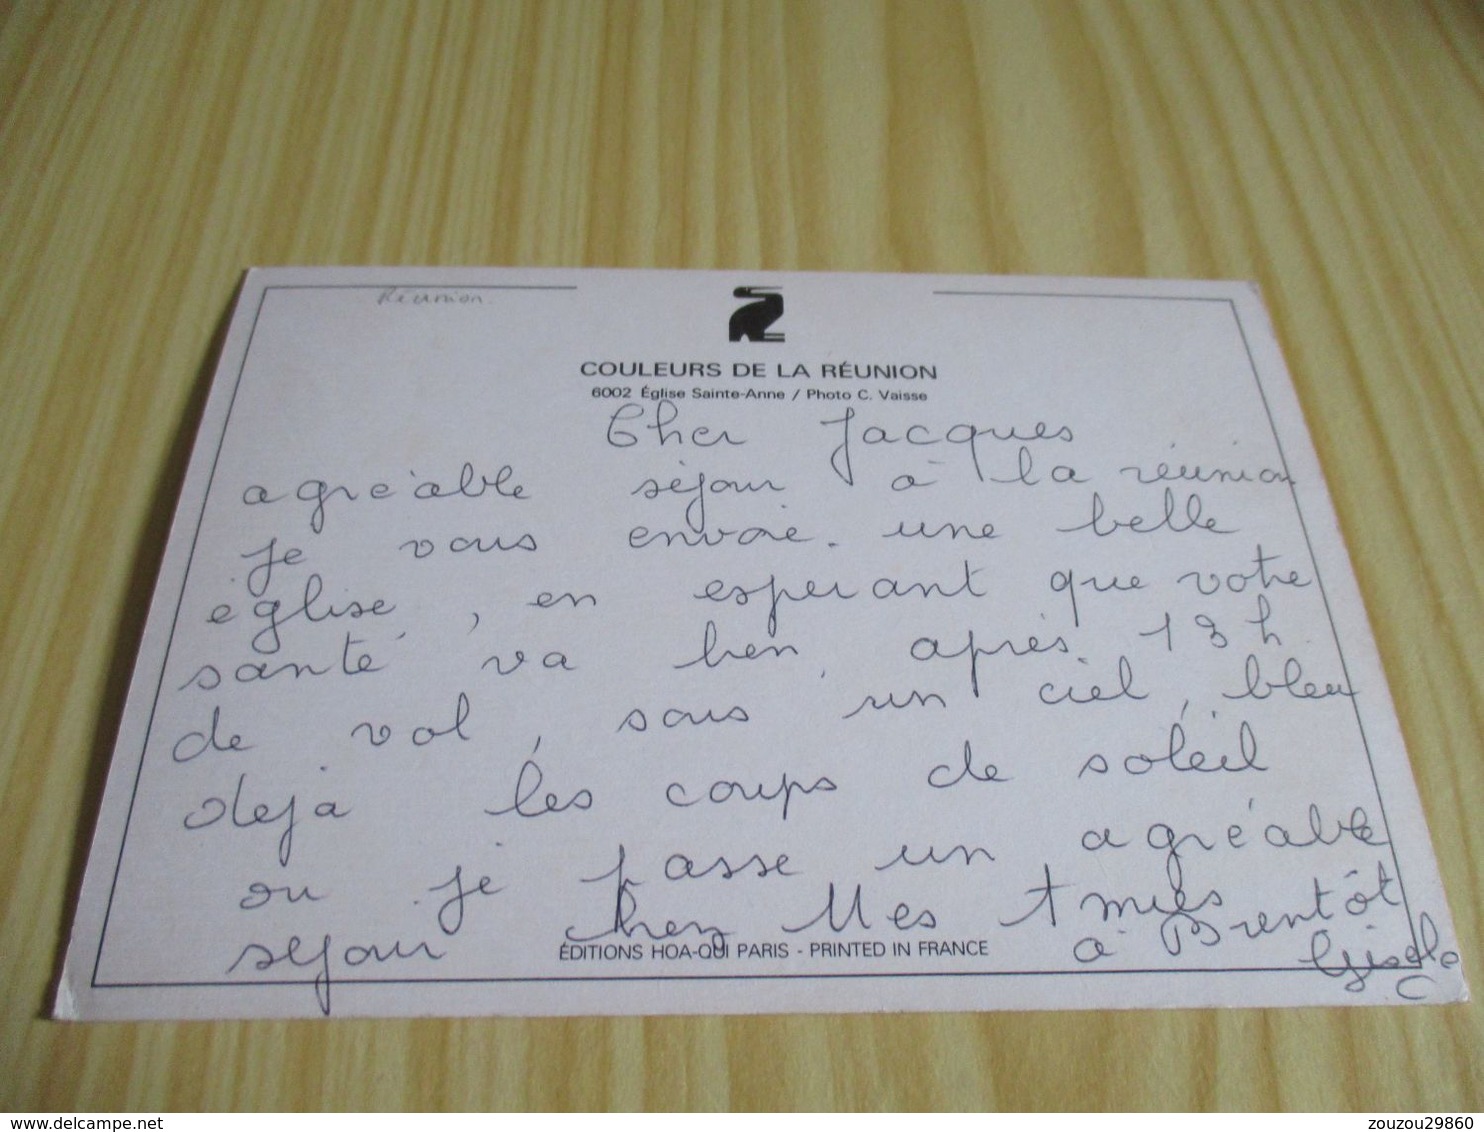 Réunion
COULEURS DE LA RÉUNION
6002 Église Sainte-Anne / Photo C. Vaisse
Cher Jacques
agréable séjour à la réunion
je vous envoie. une belle
eglise, en esperant que votre
santé va bien, après 13 h
de vol, sous un ciel, bleu
deja les coups de soleil
ou je passe un agréable
sejour chez Mes Amies
à Bientôt
Gisele
ÉDITIONS HOA-QUI PARIS - PRINTED IN FRANCE
zouzou29860